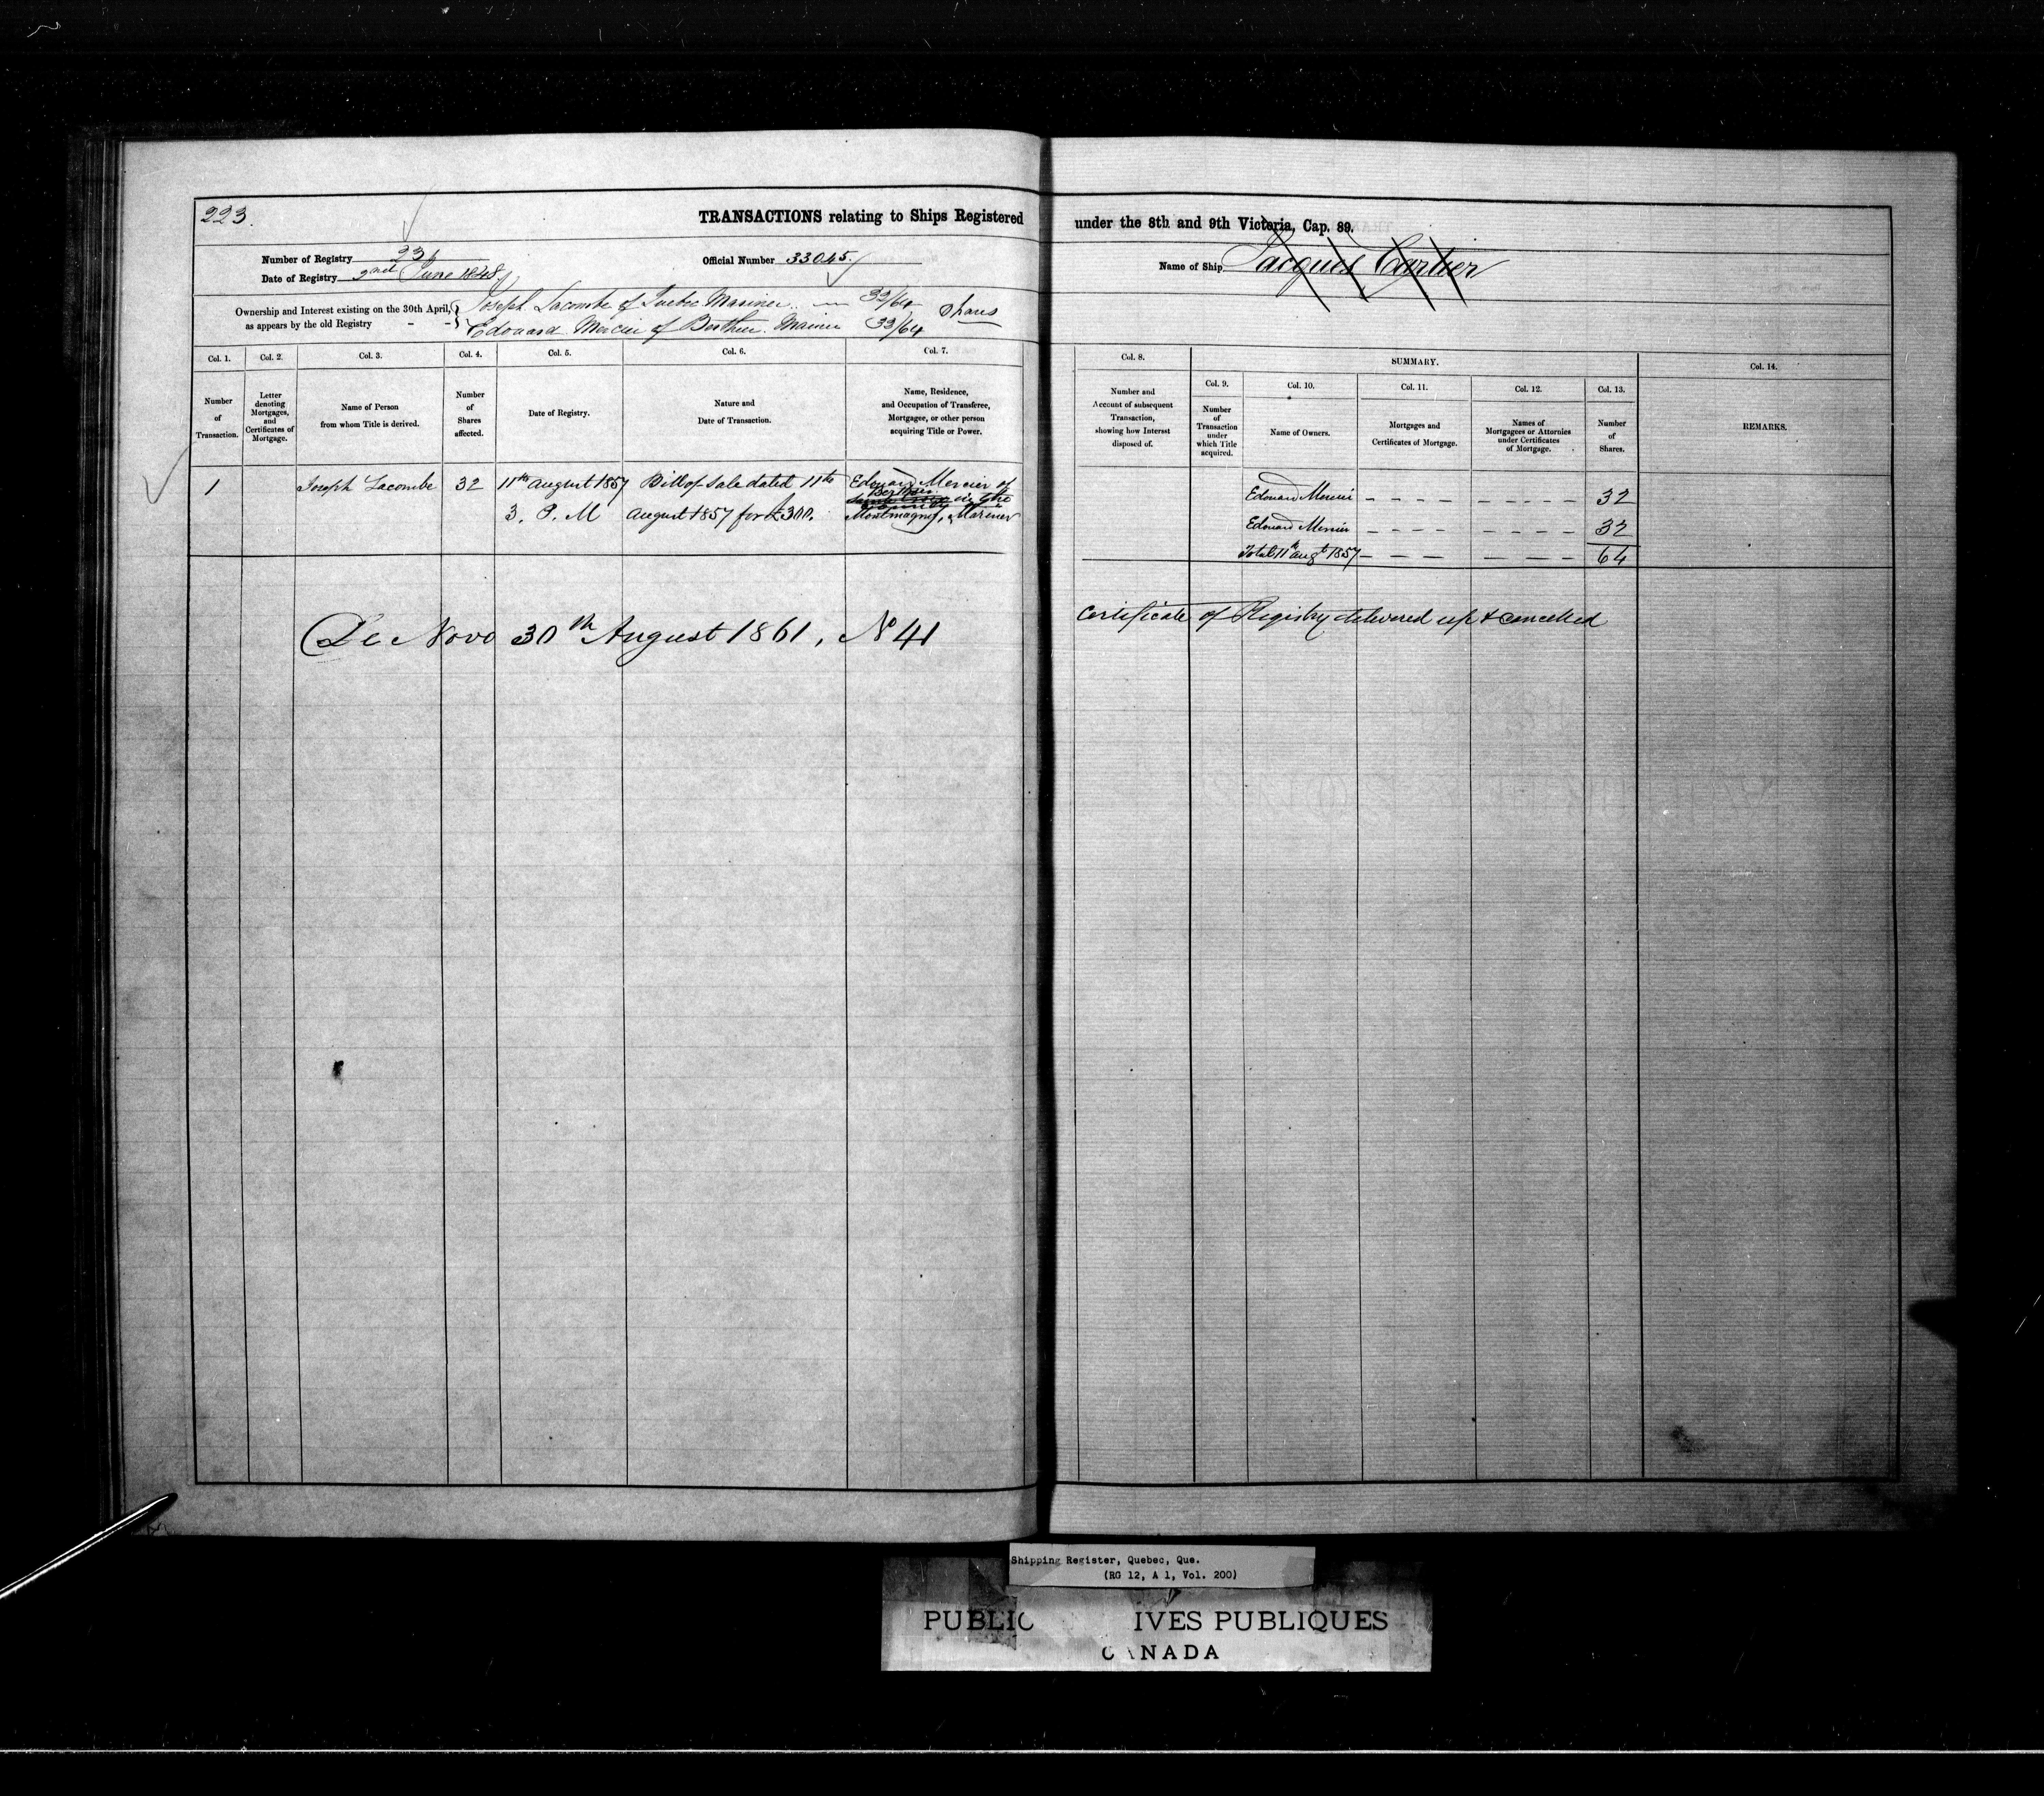 223.
TRANSACTIONS relating to Ships Registered under the 8th and 9th Victoria, Cap. 89.
Number of Registry 23
Official Number 33045.
Name of Ship Jacques Cartier
Date of Registry 2nd June 1848
Ownership and Interest existing on the 30th April,
as appears by the old Registry - -
Joseph Lacombe of Quebec Mariner 32/64
Edouard Mercier of Berthier Marine 32/64
Shares
Col. 1. Col. 2. Col. 3. Col. 4. Col. 5. Col. 6. Col. 7. Col. 8. SUMMARY. Col. 14.
Col. 9. Col. 10. Col. 11. Col. 12. Col. 13.
Number
of
Transaction.
Letter
denoting
Mortgages,
and
Certificates of
Mortgage.
Name of Person
from whom Title is derived.
Number
of
Shares
affected.
Date of Registry.
Nature and
Date of Transaction.
Name, Residence,
and Occupation of Transferee,
Mortgagee, or other person
acquiring Title or Power.
Number and
Account of subsequent
Transaction,
showing how Interest
disposed of.
Number
of
Transaction
under
which Title
acquired.
Name of Owners.
Mortgages and
Certificates of Mortgage.
Names of
Mortgagees or Attornies
under Certificates
of Mortgage.
Number
of
Shares.
REMARKS.
1
Joseph Lacombe
32
11th August 1857
3. P. M
Bill of Sale dated 11th
August 1857 for £300.
Edouard Mercier of
Berthier
in the
County of
Montmagny, Mariner
Edouard Mercier - - - - - - - - - 32
Edouard Mercier - - - - - - - - 32
Total 11th augt 1857 - - - - - - - - 64
De Novo 30th August 1861, No 41
Certificate of Registry delivered up & cancelled
Shipping Register, Quebec, Que.
(RG 12, A 1, Vol. 200)
PUBLIC IVES PUBLIQUES
CANADA